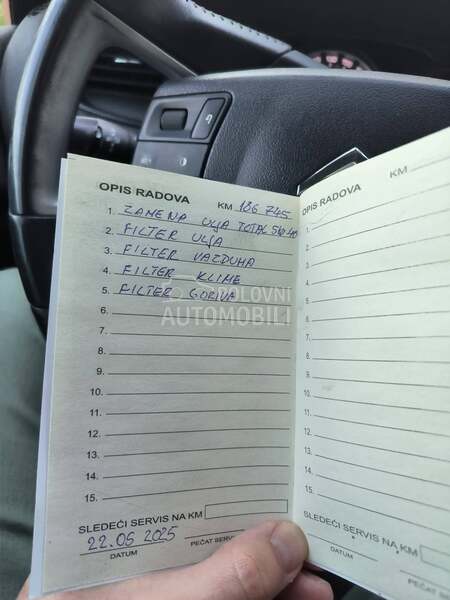 OPIS RADOVA KM 186 745
1. ZAMENA ULJA TOTAL 5W-40
2. FILTER ULJA
3. FILTER VAZDUHA
4. FILTER KLIME
5. FILTER GORIVA
6.
7.
8.
9.
10.
11.
12.
13.
14.
15.
SLEDEĆI SERVIS NA KM
22.05 2025
DATUM PEČAT SERVI
OPIS RADOVA KM
1.
2.
3.
4.
5.
6.
7.
8.
9.
10.
11.
12.
13.
14.
15.
SLEDEĆI SERVIS NA KM
DATUM PEČAT
POLOVNI
AUTOMOBILI